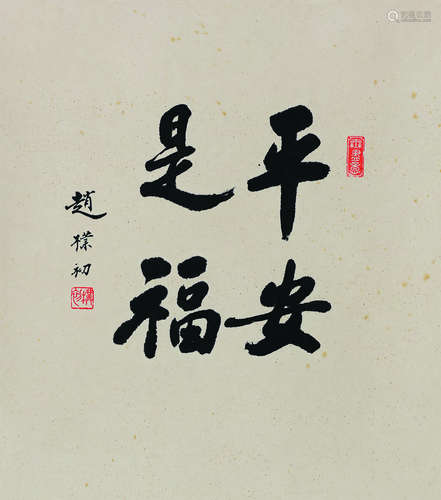 平安
是福
趙樸初